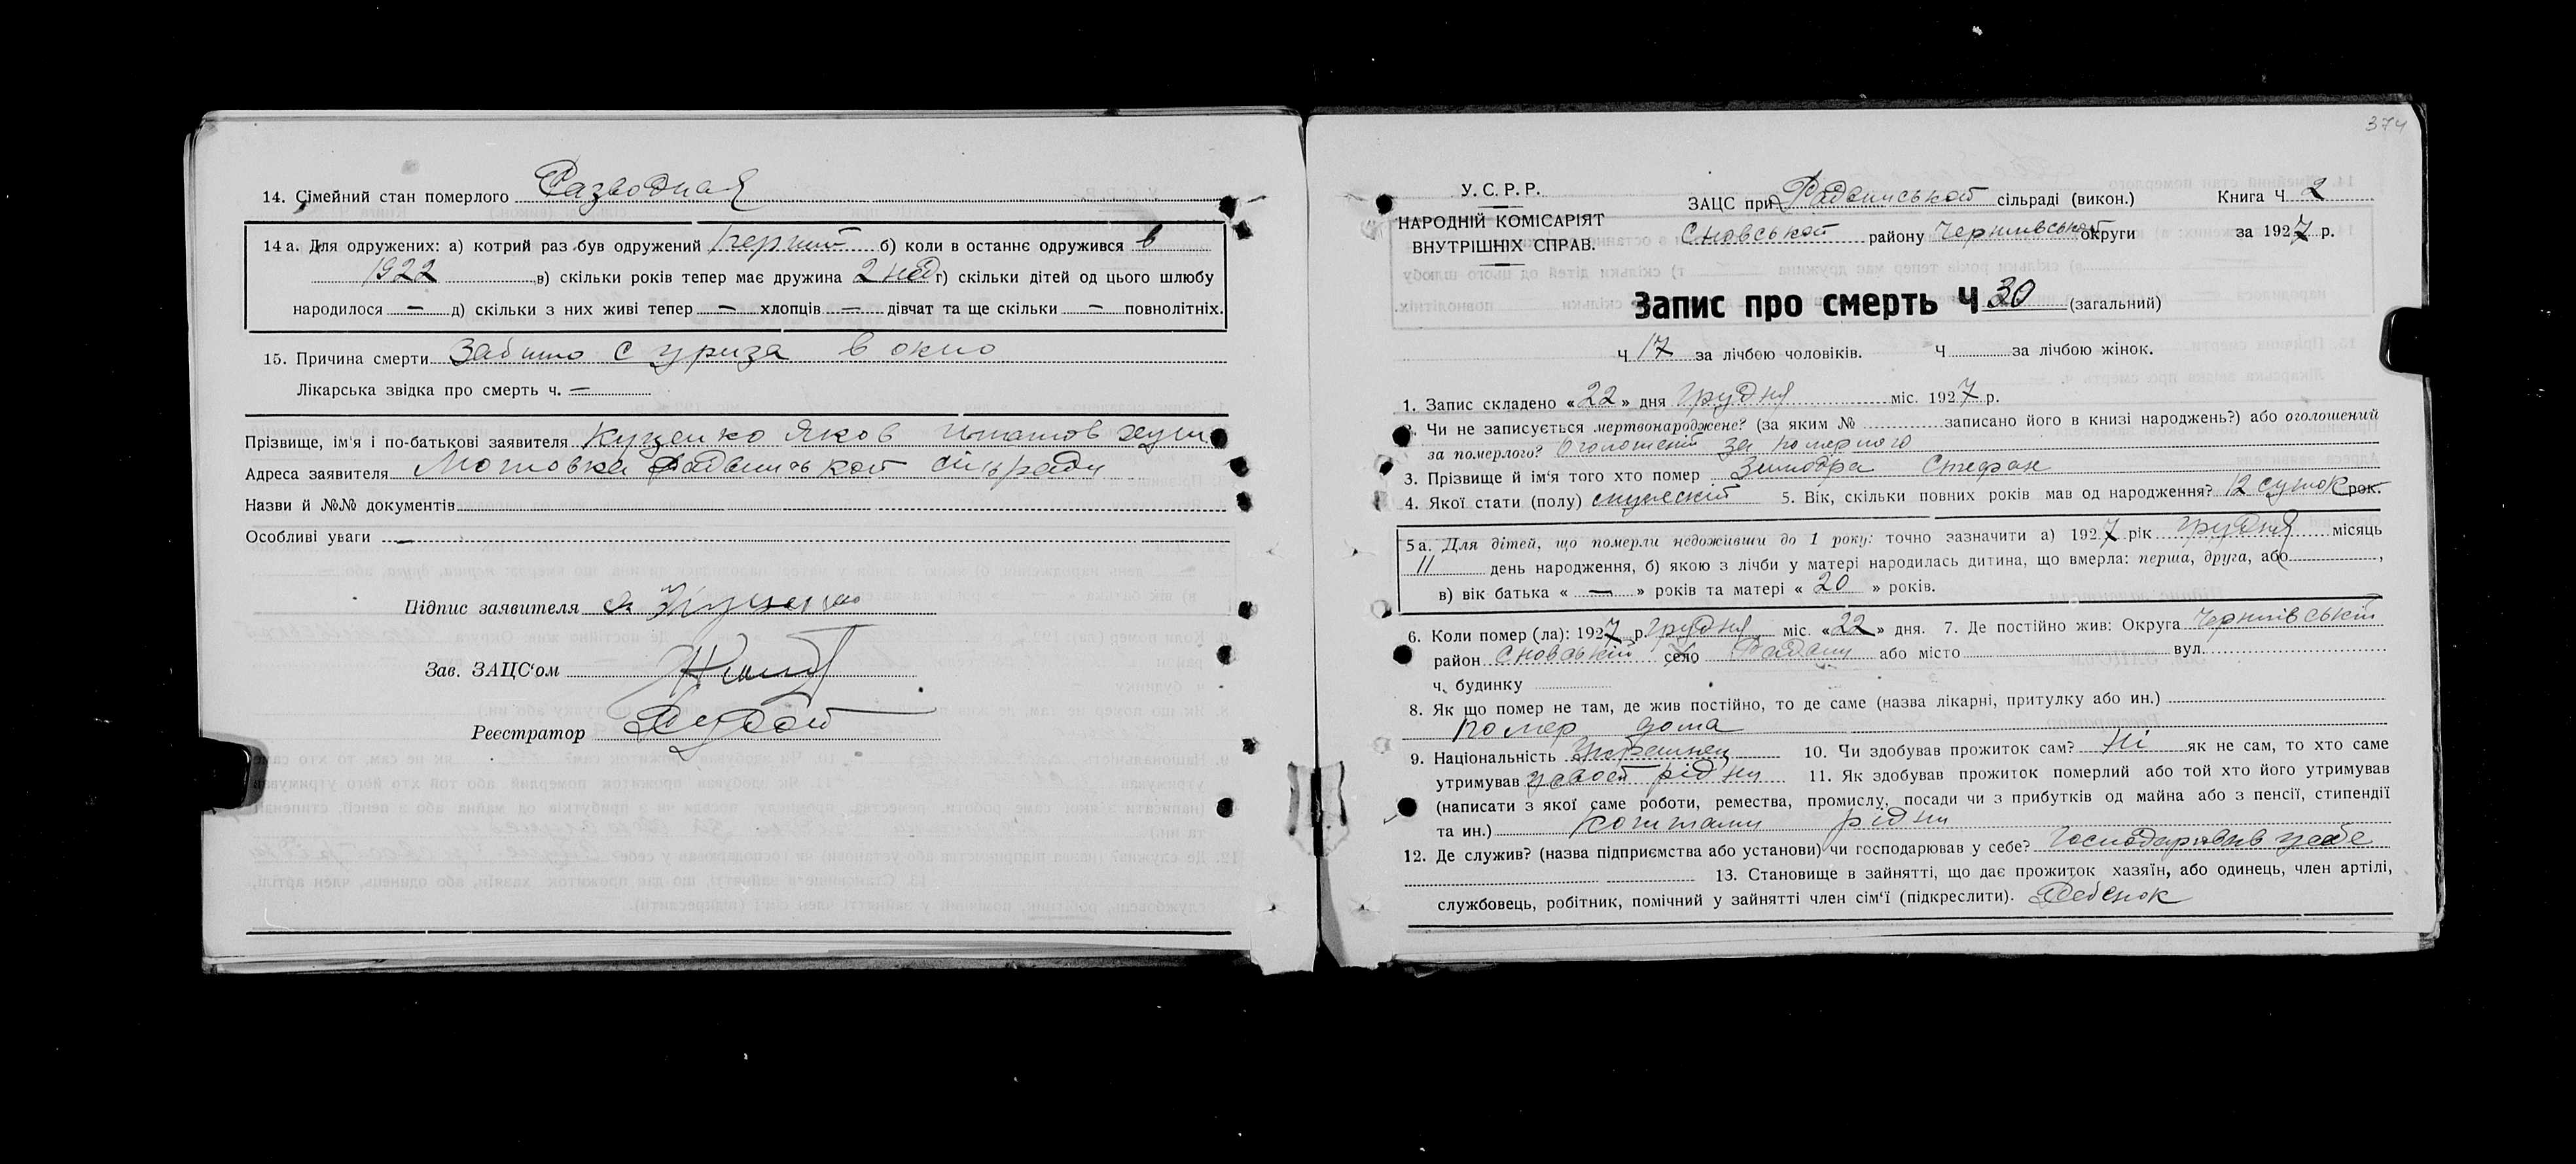 14. Сімейний стан померлого Разводная
14 а. Для одружених: а) котрий раз був одружений перший б) коли в останнє одружився в
1922 в) скільки років тепер має дружина г) скільки дітей од цього шлюбу
народилося — д) скільки з них живі тепер — хлопців — дівчат та ще скільки — повнолітніх.
15. Причина смерти в окно
Лікарська звідка про смерть ч. —
Прізвище, ім'я і по-батькові заявителя Куценко Яков
Адреса заявителя сільради
Назви й №№ документів
Особливі уваги —
Підпис заявителя Я Куценко
Зав. ЗАЦС'ом
Реєстратор
374
У. С. Р. Р.
НАРОДНІЙ КОМІСАРІЯТ
ВНУТРІШНІХ СПРАВ.
ЗАЦС при сільраді (викон.) Книга Ч 2
Сновської району Чернигівської округи за 1927 р.
Запис про смерть Ч 30 (загальний)
Ч 17 за лічбою чоловіків. Ч за лічбою жінок.
1. Запис складено «22» дня Грудня міс. 1927 р.
2. Чи не записується мертвонароджене? (за яким № записано його в книзі народжень?) або оголошений
за померлого? Оголошений за померлого
3. Прізвище й ім'я того хто помер Стефан
4. Якої стати (полу) 5. Вік, скільки повних років мав од народження? 12 суток рок.
5 а. Для дітей, що померли недоживши до 1 року: точно зазначити а) 1927 рік Грудня місяць
11 день народження, б) якою з лічби у матері народилась дитина, що вмерла: перша, друга, або ,
в) вік батька « — » років та матері « 20 » років.
6. Коли помер (ла): 1927 р. Грудня міс. «22» дня. 7. Де постійно жив: Округа Чернигівській
район Сновський село або місто вул.
ч. будинку
8. Як що помер не там, де жив постійно, то де саме (назва лікарні, притулку або ин.)
Помер дома
9. Національність Українец 10. Чи здобував прожиток сам? Ні як не сам, то хто саме
утримував рідни 11. Як здобував прожиток померлий або той хто його утримував
(написати з якої саме роботи, ремества, промислу, посади чи з прибутків од майна або з пенсії, стипендії
та ин.) коштами рідни
12. Де служив? (назва підприємства або установи) чи господарював у себе? Господарював у себе
13. Становище в зайнятті, що дає прожиток хазяїн, або одинець, член артілі,
службовець, робітник, помічний у зайнятті член сім'ї (підкреслити). Ребенок